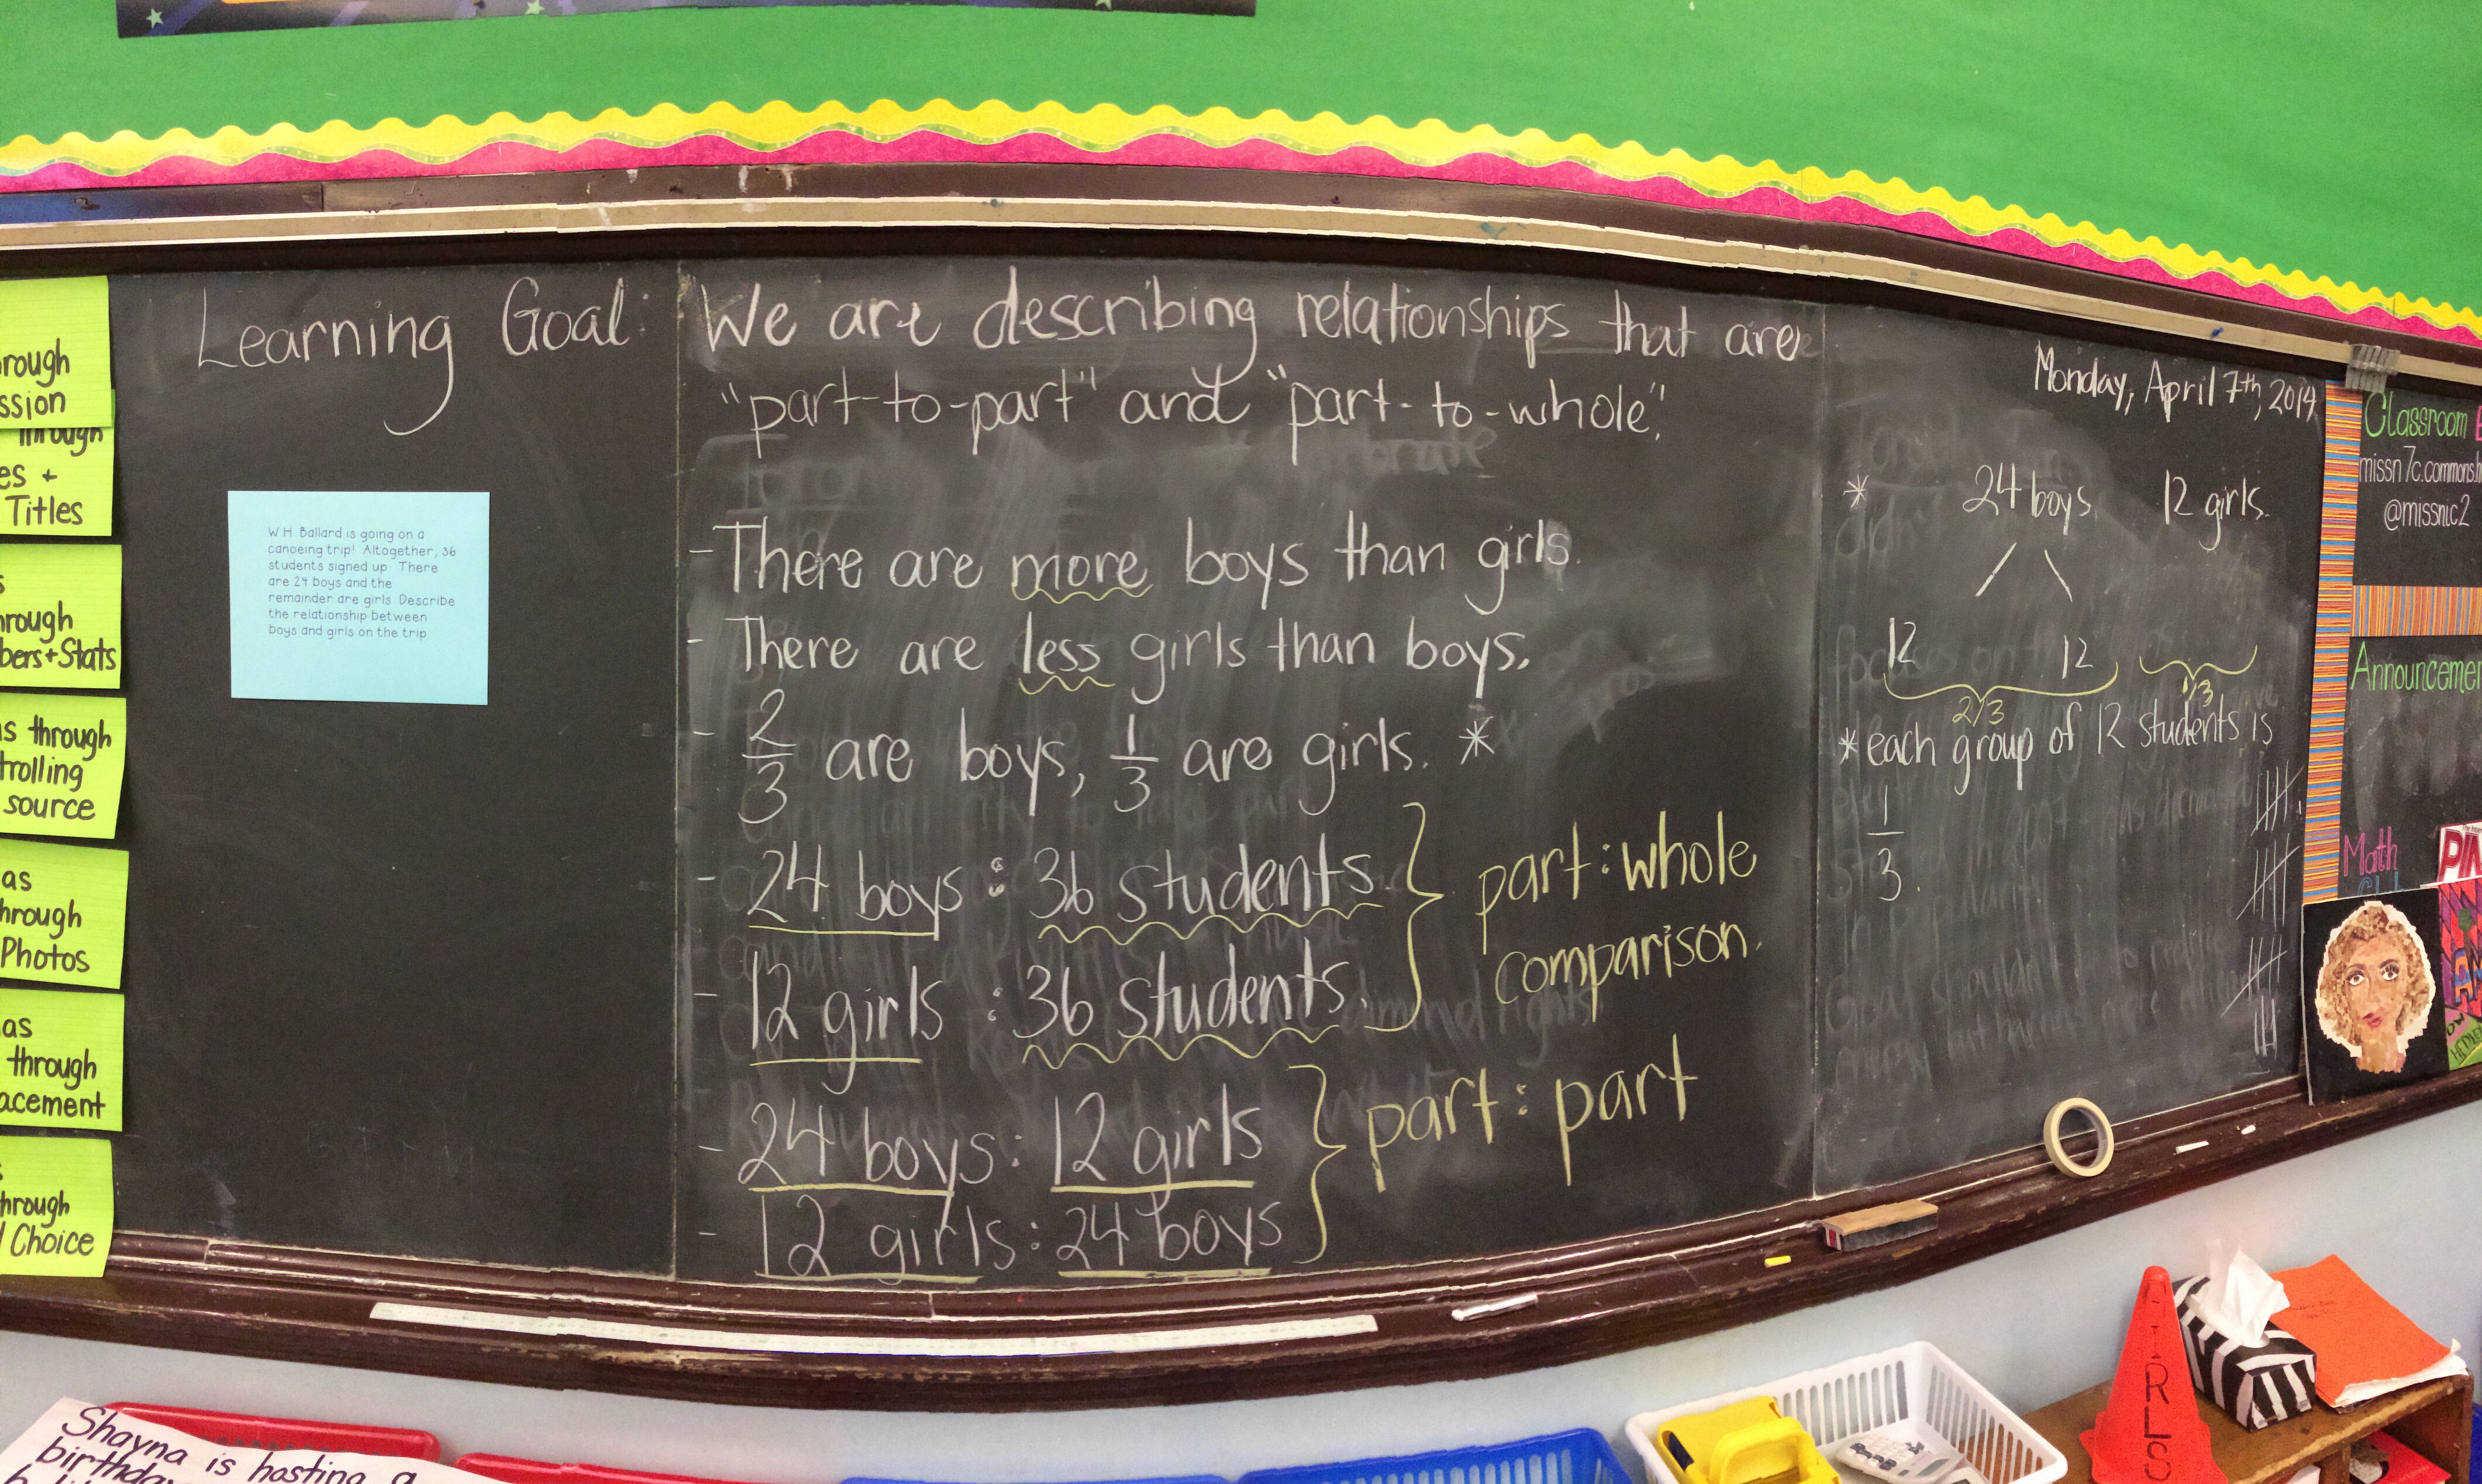 rough
ssion
through
es +
Titles
s
hrough
bers+Stats
s through
trolling
source
as
hrough
Photos
as
through
acement
s
hrough
Choice
Learning Goal:
W.H. Ballard is going on a
canoeing trip! Altogether, 36
students signed up. There
are 24 boys and the
remainder are girls. Describe
the relationship between
boys and girls on the trip
We are describing relationships that are
"part-to-part" and "part-to-whole".
- There are more boys than girls.
- There are less girls than boys.
- 2/3 are boys, 1/3 are girls. *
- 24 boys : 36 students
- 12 girls : 36 students.
part : whole
comparison.
- 24 boys : 12 girls
- 12 girls : 24 boys
part : part
Monday, April 7th, 2014
* 24 boys 12 girls.
12 12
2/3 1/3
* each group of 12 students is
1/3.
Classroom
missn7c.commons.h
@missnic2
Announcemen
Math
PIN
Shayna is hosting a
birthday
GIRLS